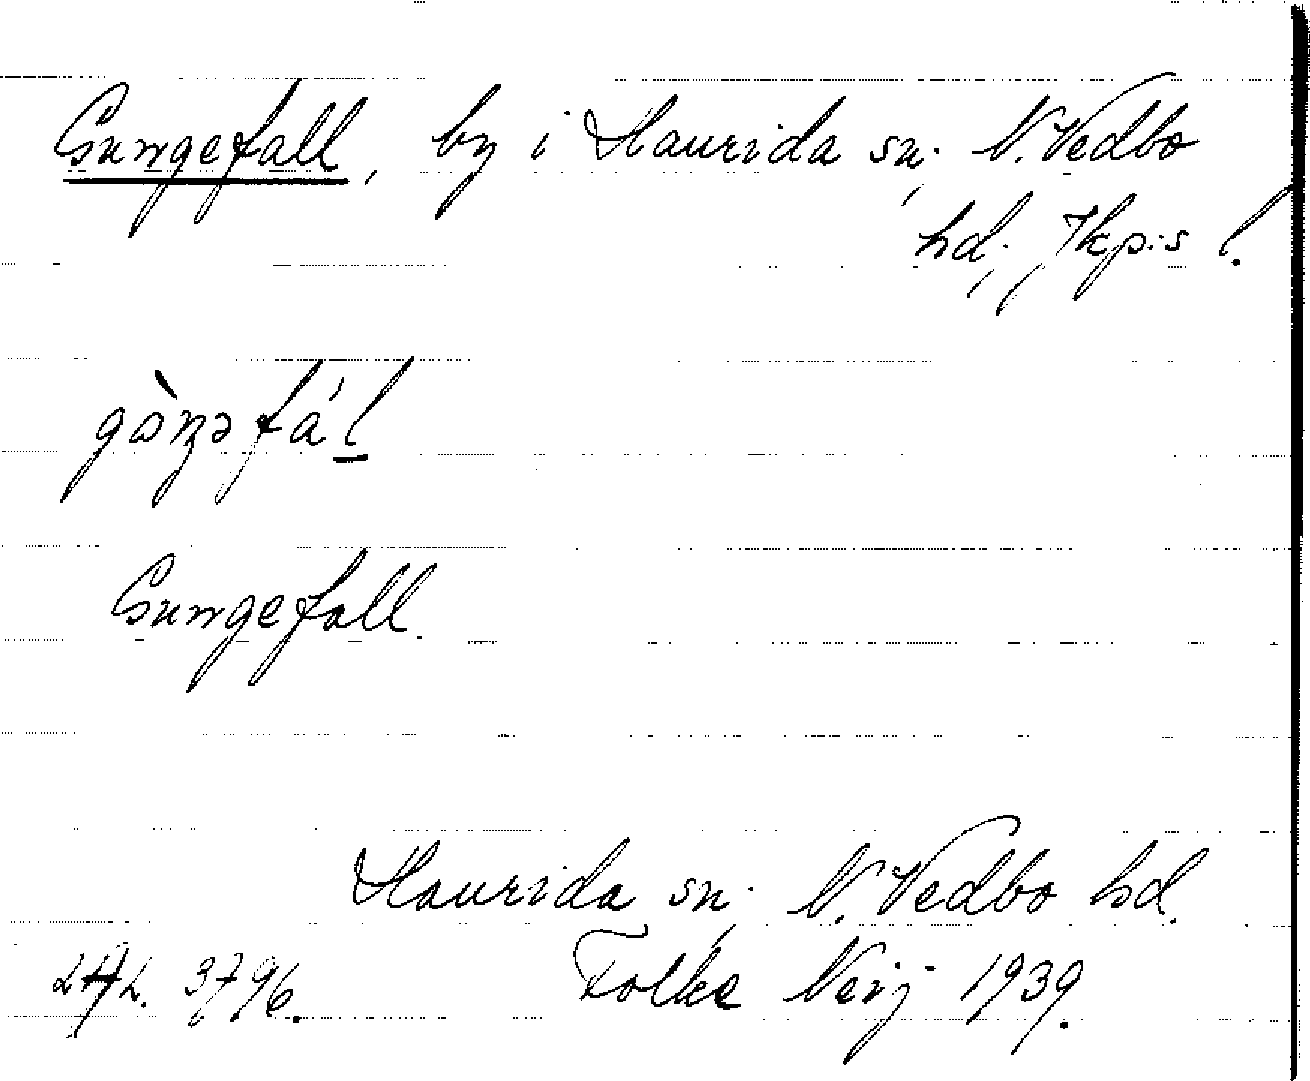 Gungefall, by i Haurida sn, N. Vedbo
hd, Jkpgs l.
gòŋəfál
Gungefall.
Haurida sn, N. Vedbo hd.
3796. Folke Neij 1939.